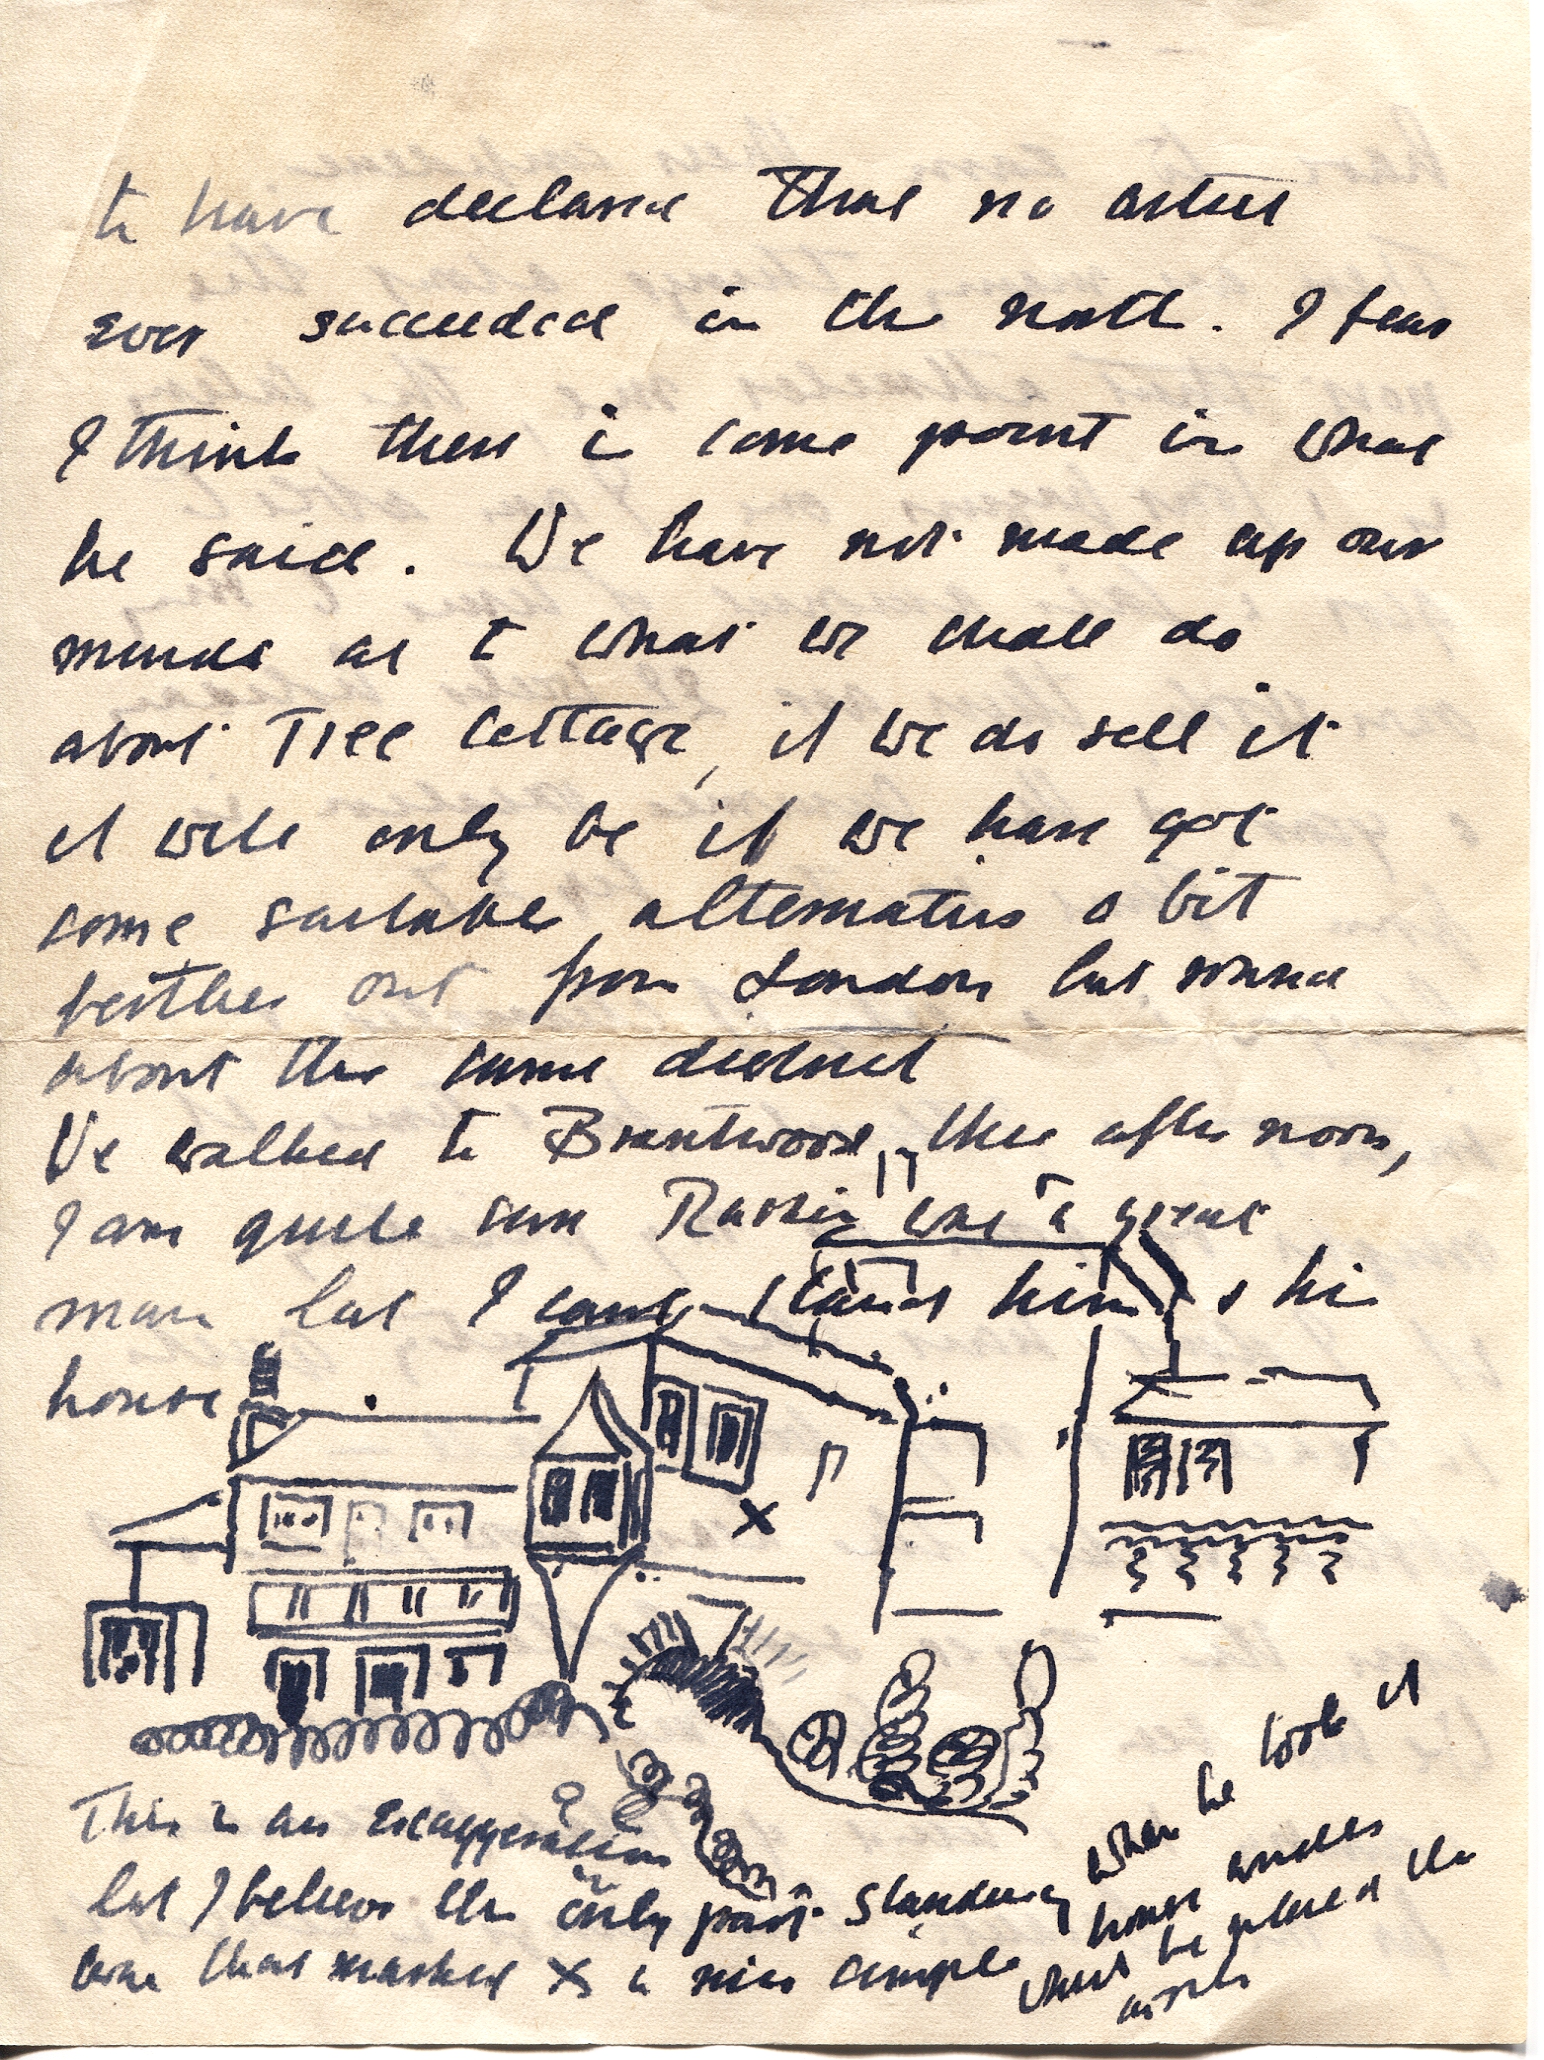 to have declared that no artist
ever succeeded in the north. I fear
I think there is some point in what
he said. We have not made up our
minds as to what we shall do
about Tree Cottage, if we do sell it
it will only be if we have got
some suitable alternative a bit
further out from London but round
about the same district
We walked to Brantwood this afternoon,
I am quite sure Ruskin was a great
man but I can't stand him & his
house
X
This is an exaggeration
but I believe the only part standing when he took it
was that marked X a nice simple house under
which he placed the